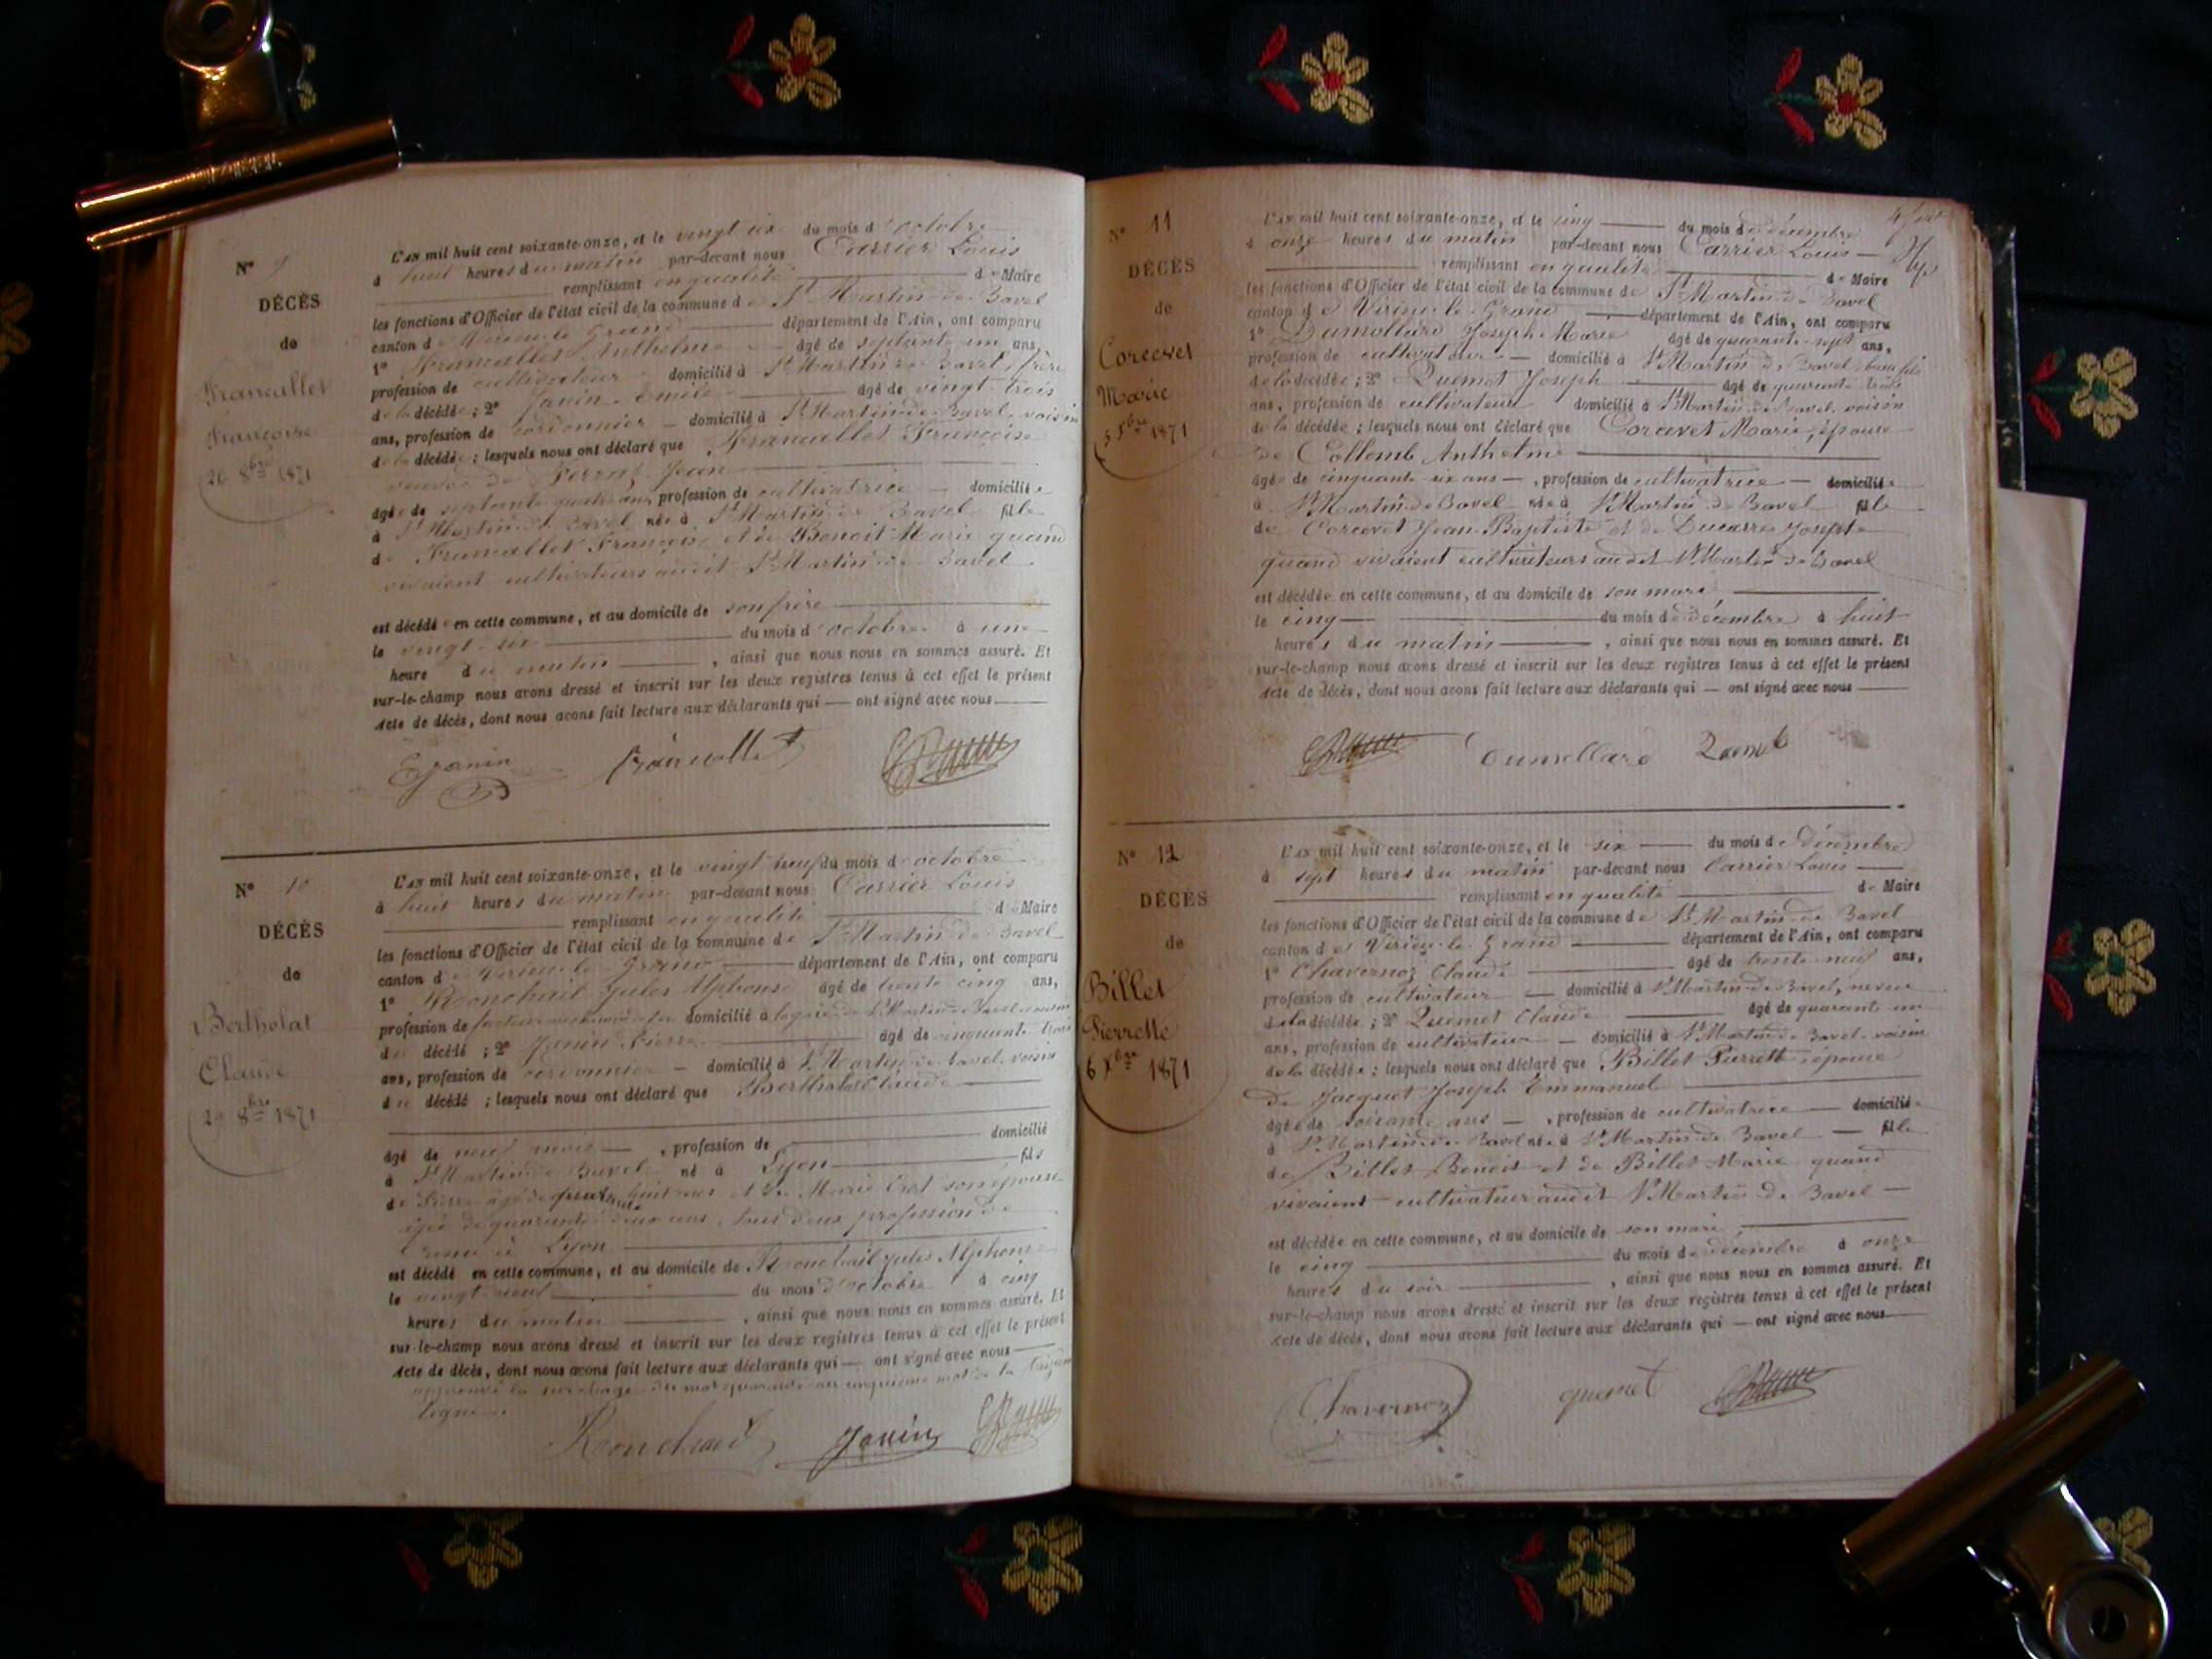 N° 9
DÉCÈS
de
Francallet
Françoise
26 8bre 1871
L'AN mil huit cent soixante-onze, et le vingt six du mois d'octobre
à huit heures du matin par-devant nous Carrier Louis
remplissant en qualité de Maire
les fonctions d'Officier de l'état civil de la commune de St Martin de Bavel
canton de Virieu le Grand département de l'Ain, ont comparu
1° Francallet Anthelme âgé de septante un ans,
profession de cultivateur domicilié à St Martin de Bavel, frère
de la décédée ; 2° Janin Emile âgé de vingt trois
ans, profession de cordonnier domicilié à St Martin de Bavel, voisin
de la décédée ; lesquels nous ont déclaré que Francallet Françoise
veuve de Perraz Jean
âgée de septante quatre ans profession de cultivatrice domiciliée
à St Martin de Bavel née à St Martin de Bavel fille
de Francallet François et de Benoit Marie quand
vivaient cultivateurs audit St Martin de Bavel
est décédée en cette commune, et au domicile de son frère
le vingt-six du mois d'octobre à une
heure du matin , ainsi que nous nous en sommes assuré. Et
sur-le-champ nous avons dressé et inscrit sur les deux registres tenus à cet effet le présent
Acte de décès, dont nous avons fait lecture aux déclarants qui — ont signé avec nous
E Janin Francallet
N° 10
DÉCÈS
de
Bertholat
Claude
29 8bre 1871
L'AN mil huit cent soixante-onze, et le vingt neuf du mois d'octobre
à huit heures du matin par-devant nous Carrier Louis
remplissant en qualité de Maire
les fonctions d'Officier de l'état civil de la commune de St Martin de Bavel
canton de Virieu le Grand département de l'Ain, ont comparu
1° Ronchail Jules Alphonse âgé de trente cinq ans,
profession de facteur domicilié à la gare de St Martin de Bavel voisin
du décédé ; 2° Janin Pierre âgé de cinquante trois
ans, profession de cordonnier — domicilié à St Martin de Bavel, voisin
du décédé ; lesquels nous ont déclaré que Bertholat Claude
âgé de neuf mois , profession de domicilié
à St Martin de Bavel né à Lyon fils
de Pierre âgé de quarante huit ans et de Marie son épouse
âgée de quarante deux ans, tous deux profession de
à Lyon
est décédé en cette commune, et au domicile de Ronchail Jules Alphonse
le vingt-neuf du mois d'octobre à cinq
heures du matin , ainsi que nous nous en sommes assuré. Et
sur-le-champ nous avons dressé et inscrit sur les deux registres tenus à cet effet le présent
Acte de décès, dont nous avons fait lecture aux déclarants qui — ont signé avec nous
approuvé la surcharge du mot quarante au cinquième mot de la
ligne
Ronchail Janin
N° 11
DÉCÈS
de
Corcevet
Marie
5 Xbre 1871
L'AN mil huit cent soixante-onze, et le cinq du mois de décembre
à onze heures du matin par-devant nous Carrier Louis
remplissant en qualité de Maire
les fonctions d'Officier de l'état civil de la commune de St Martin de Bavel
canton de Virieu le Grand département de l'Ain, ont comparu
1° Dumollard Joseph Marie âgé de quarante sept ans,
profession de cultivateur — domicilié à St Martin de Bavel, beau fils
de la décédée ; 2° Quemet Joseph âgé de quarante trois
ans, profession de cultivateur domicilié à St Martin de Bavel, voisin
de la décédée ; lesquels nous ont déclaré que Corcevet Marie, épouse
de Collomb Anthelme
âgée de cinquante six ans — , profession de cultivatrice — domiciliée
à St Martin de Bavel née à St Martin de Bavel fille
de Corcevet Jean Baptiste et de Ducarre Josepte
quand vivaient cultivateurs audit St Martin de Bavel
est décédée en cette commune, et au domicile de son mari
le cinq du mois de décembre à huit
heures du matin , ainsi que nous nous en sommes assuré. Et
sur-le-champ nous avons dressé et inscrit sur les deux registres tenus à cet effet le présent
Acte de décès, dont nous avons fait lecture aux déclarants qui — ont signé avec nous
Dumollard Quemet
N° 12
DÉCÈS
de
Billet
Pierrette
6 Xbre 1871
L'AN mil huit cent soixante-onze, et le six du mois de décembre
à sept heures du matin par-devant nous Carrier Louis
remplissant en qualité de Maire
les fonctions d'Officier de l'état civil de la commune de St Martin de Bavel
canton de Virieu le Grand département de l'Ain, ont comparu
1° Chavernoz Claude âgé de trente neuf ans,
profession de cultivateur — domicilié à St Martin de Bavel, neveu
de la décédée ; 2° Quemet Claude âgé de quarante un
ans, profession de cultivateur — domicilié à St Martin de Bavel, voisin
de la décédée ; lesquels nous ont déclaré que Billet Pierrette épouse
de Jacquet Joseph Emmanuel
âgée de soixante ans — , profession de cultivatrice — domiciliée
à St Martin de Bavel née à St Martin de Bavel — fille
de Billet Benoit et de Billet Marie quand
vivaient cultivateur audit St Martin de Bavel —
est décédée en cette commune, et au domicile de son mari
le cinq du mois de décembre à onze
heures du soir , ainsi que nous nous en sommes assuré. Et
sur-le-champ nous avons dressé et inscrit sur les deux registres tenus à cet effet le présent
Acte de décès, dont nous avons fait lecture aux déclarants qui — ont signé avec nous
Chavernoz quemet